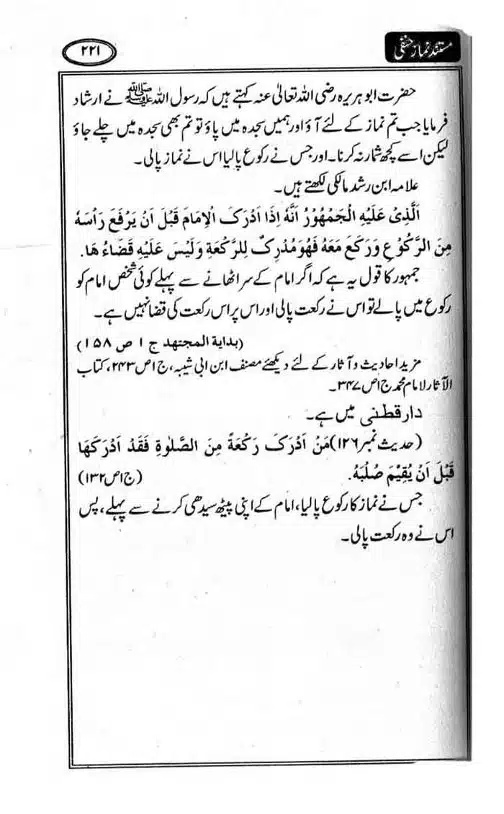 مستند نماز حنفی
۲۲۱
حضرت ابو ہریرہ رضی اللہ تعالیٰ عنہ کہتے ہیں کہ رسول اللہ ﷺ نے ارشاد
فرمایا جب تم نماز کے لئے آؤ اور ہمیں سجدہ میں پاؤ تو تم بھی سجدہ میں چلے جاؤ
لیکن اسے کچھ شمار نہ کرنا۔ اور جس نے رکوع پالیا اس نے نماز پالی۔
علامہ ابن رشد مالکی لکھتے ہیں۔
اَلَّذِیْ عَلَیْهِ الْجَمْهُوْرُ اَنَّهٗ اِذَا اَدْرَکَ الْاِمَامَ قَبْلَ اَنْ یَرْفَعَ رَاْسَهٗ
مِنَ الرَّکُوْعِ وَرَکَعَ مَعَهٗ فَهُوَ مُدْرِکٌ لِلرَّکْعَةِ وَلَیْسَ عَلَیْهِ قَضَاءُ هَا.
جمہور کا قول یہ ہے کہ اگر امام کے سر اٹھانے سے پہلے کوئی شخص امام کو
رکوع میں پالے تو اس نے رکعت پالی اور اس پر اس رکعت کی قضا نہیں ہے۔
(بدایة المجتهد ج ۱ ص ۱۵۸)
مزید احادیث و آثار کے لئے دیکھئے مصنف ابن ابی شیبہ، ج۱ص۲۴۳، کتاب
الآثار لامام محمد ج۱ص۳۴۷۔
دار قطنی میں ہے۔
(حدیث نمبر۱۲۶) مَنْ اَدْرَکَ رَکْعَةً مِنَ الصَّلٰوةِ فَقَدْ اَدْرَکَهَا
قَبْلَ اَنْ یُقِیْمَ صُلْبَهٗ. (ج۱ص۱۳۲)
جس نے نماز کا رکوع پالیا، امام کے اپنی پیٹھ سیدھی کرنے سے پہلے، پس
اس نے وہ رکعت پالی۔